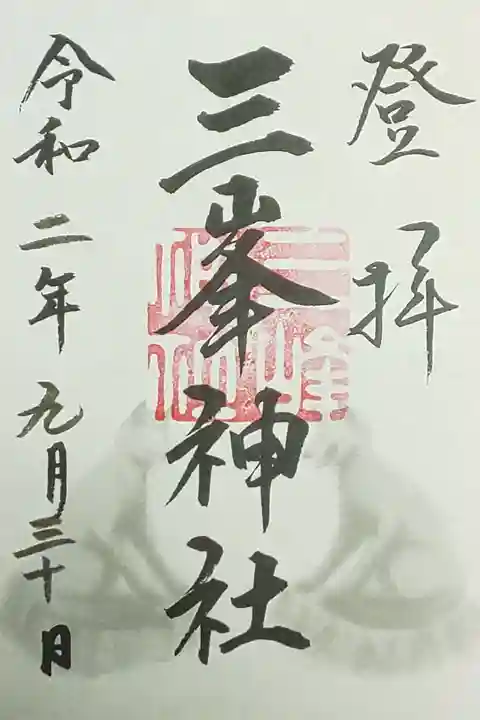 登拝
三峯神社
令和二年九月三十日